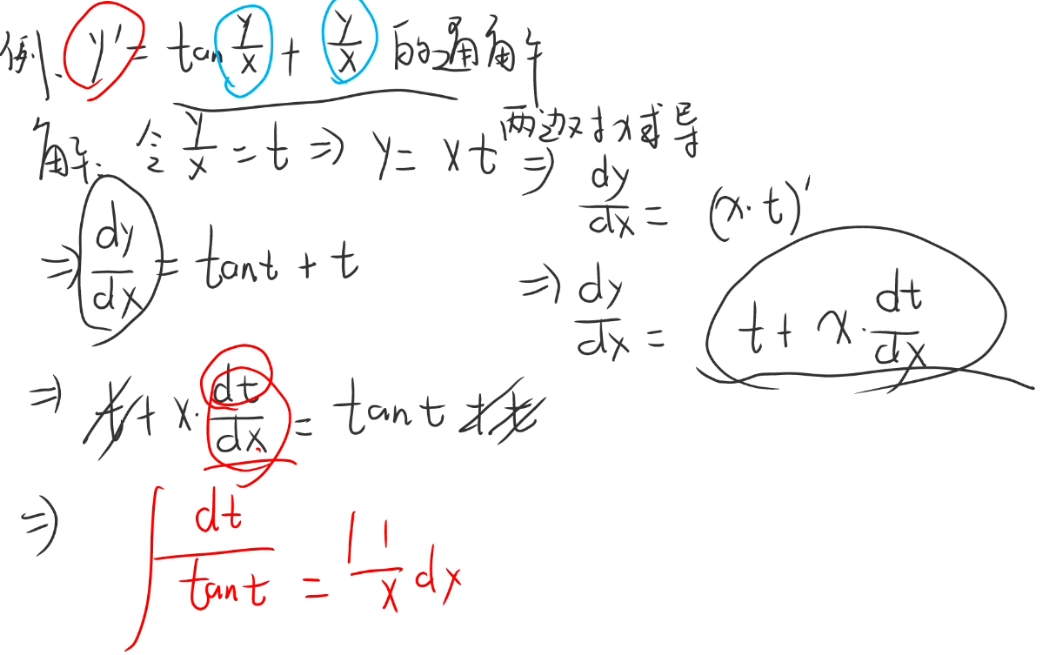 例、y' = tan y/x + y/x 的通解
解：令 y/x = t ⇒ y = xt 两边对x求导 ⇒ dy/dx = (x·t)'
⇒ dy/dx = tant + t
⇒ dy/dx = t + x·dt/dx
⇒ t + x·dt/dx = tant + t
⇒ ∫ dt/tant = ∫ 1/x dx